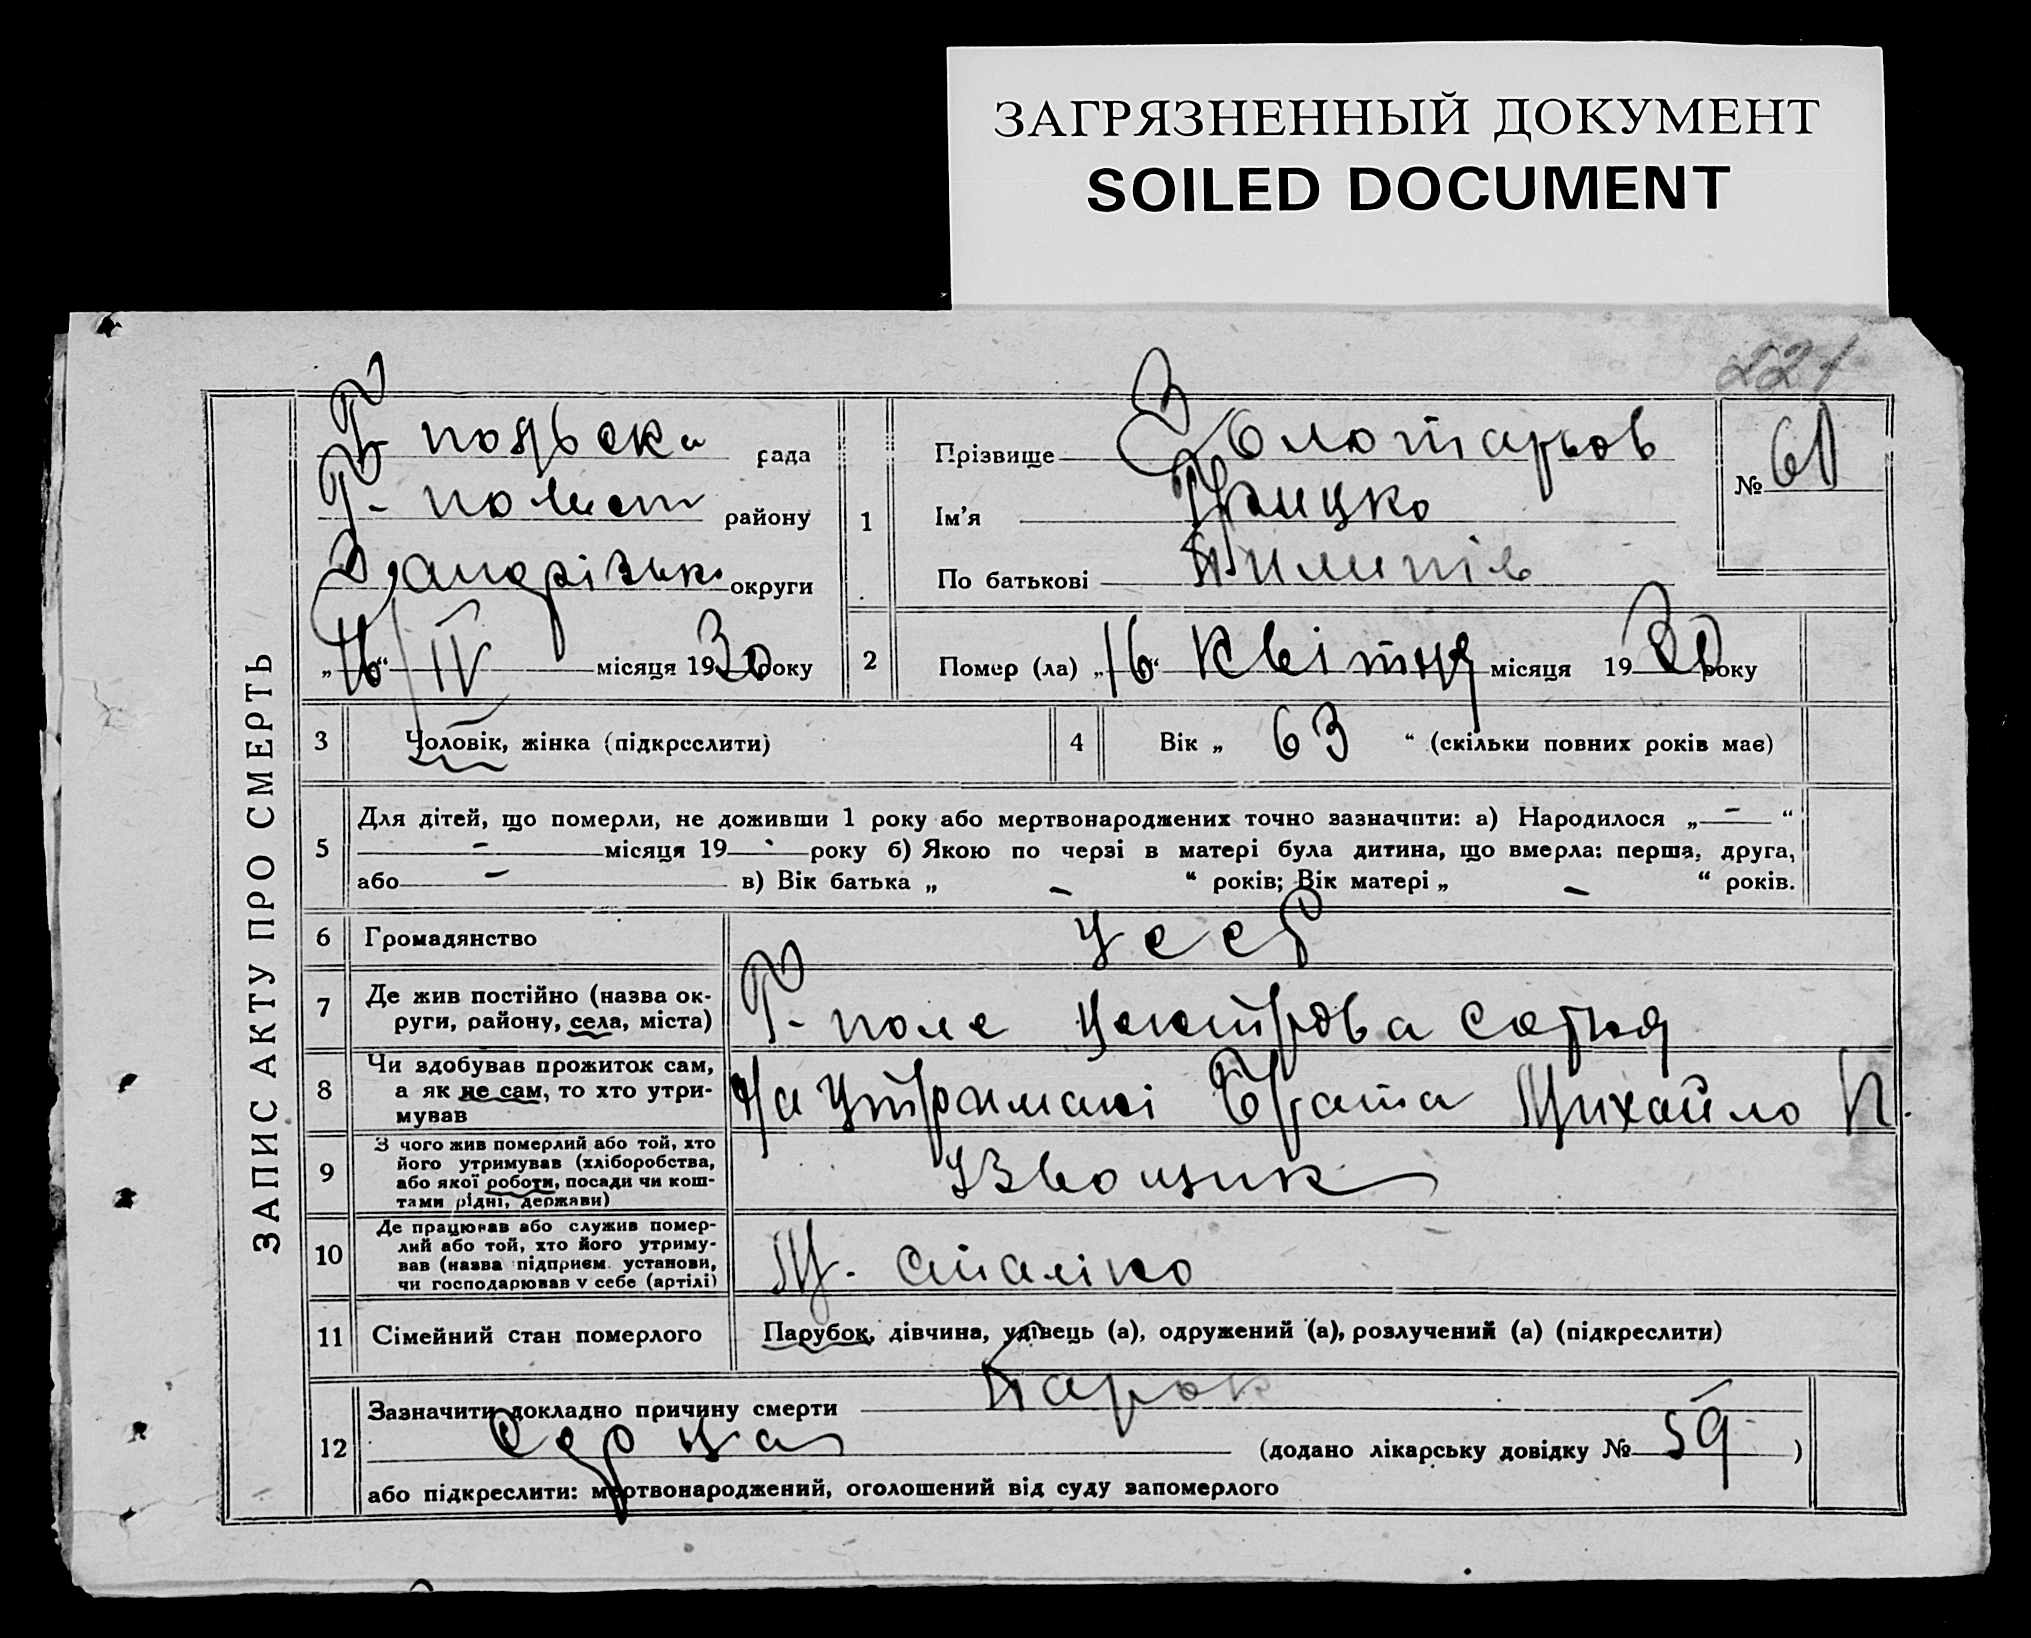 ЗАГРЯЗНЕННЫЙ ДОКУМЕНТ
SOILED DOCUMENT
221
ЗАПИС АКТУ ПРО СМЕРТЬ
Г- рада
Г- район­у
округи
„16“ IV місяця 1930 року
1
Прізвище Золотарьов
Ім’я Грицко
По батькові Пилипів
№ 61
2
Помер (ла) „16“ Квітня місяця 1930 року
3
Чоловік, жінка (підкреслити)
4
Вік „ 63 “ (скільки повних років має)
5
Для дітей, що померли, не доживши 1 року або мертвонароджених точно зазначити: а) Народилося „ – “
– місяця 19 року б) Якою по черзі в матері була дитина, що вмерла: перша, друга,
або – в) Вік батька „ – “ років; Вік матері „ – “ років.
6
Громадянство
УССР
7
Де жив постійно (назва ок-
руги, району, села, міста)
Г- поле Центрова сотня
8
Чи здобував прожиток сам,
а як не сам, то хто утри-
мував
На утриманні Брата Михайло П.
9
З чого жив померлий або той, хто
його утримував (хліборобства,
або якої роботи, посади чи кош-
тами рідні, держави)
Ізвощик
10
Де працював або служив помер-
лий або той, хто його утриму-
вав (назва підприєм. установи,
чи господарював у себе (артілі)
11
Сімейний стан померлого
Парубок, дівчина, удівець (а), одружений (а), розлучений (а) (підкреслити)
12
Зазначити докладно причину смерти Парок
Серца (додано лікарську довідку № 59 )
або підкреслити: мертвонароджений, оголошений від суду запомерлого